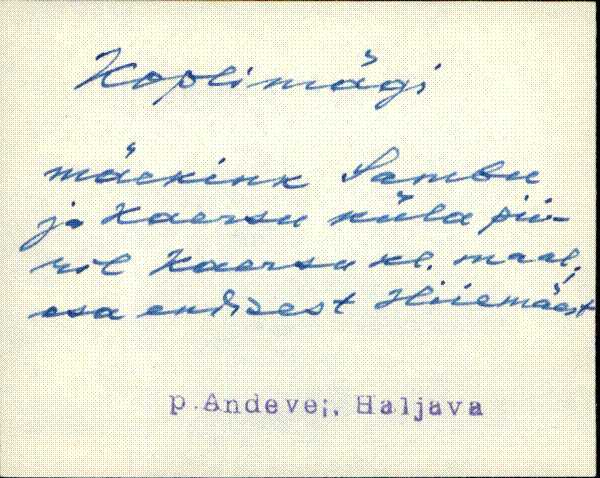 Koplimägi
mäekink Sambu
ja Kaersu küla pii-
ril Kaersu kl. maal,
osa endisest Hiiemäest
p.Andevei, Haljava